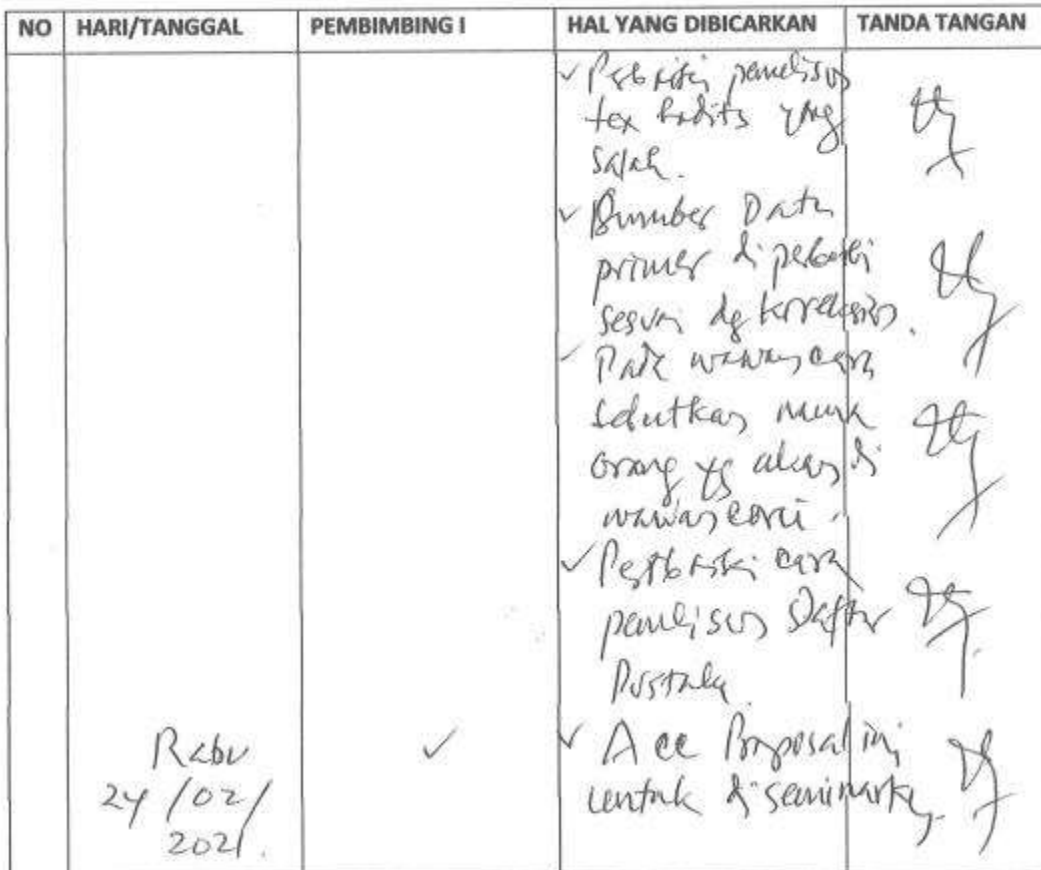 NO HARI/TANGGAL PEMBIMBING I HAL YANG DIBICARKAN TANDA TANGAN
✓ Perbaiki penulisan
tex hadits yang
salah.
✓ Sumber Data
primer di perbaiki
sesuai dg koreksian.
✓ Pada wawancara
sebutkan nama
orang yg akan di
wawancarai.
✓ Perbaiki cara
penulisan Daftar
Pustaka
Rabu ✓ ✓ Acc Proposal ini
24/02/ untuk di seminarkan.
2021.